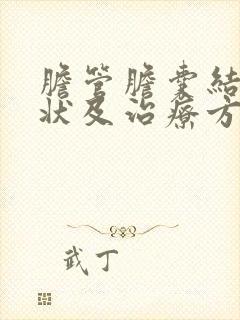 膽管膽囊結
狀及治療方
武丁